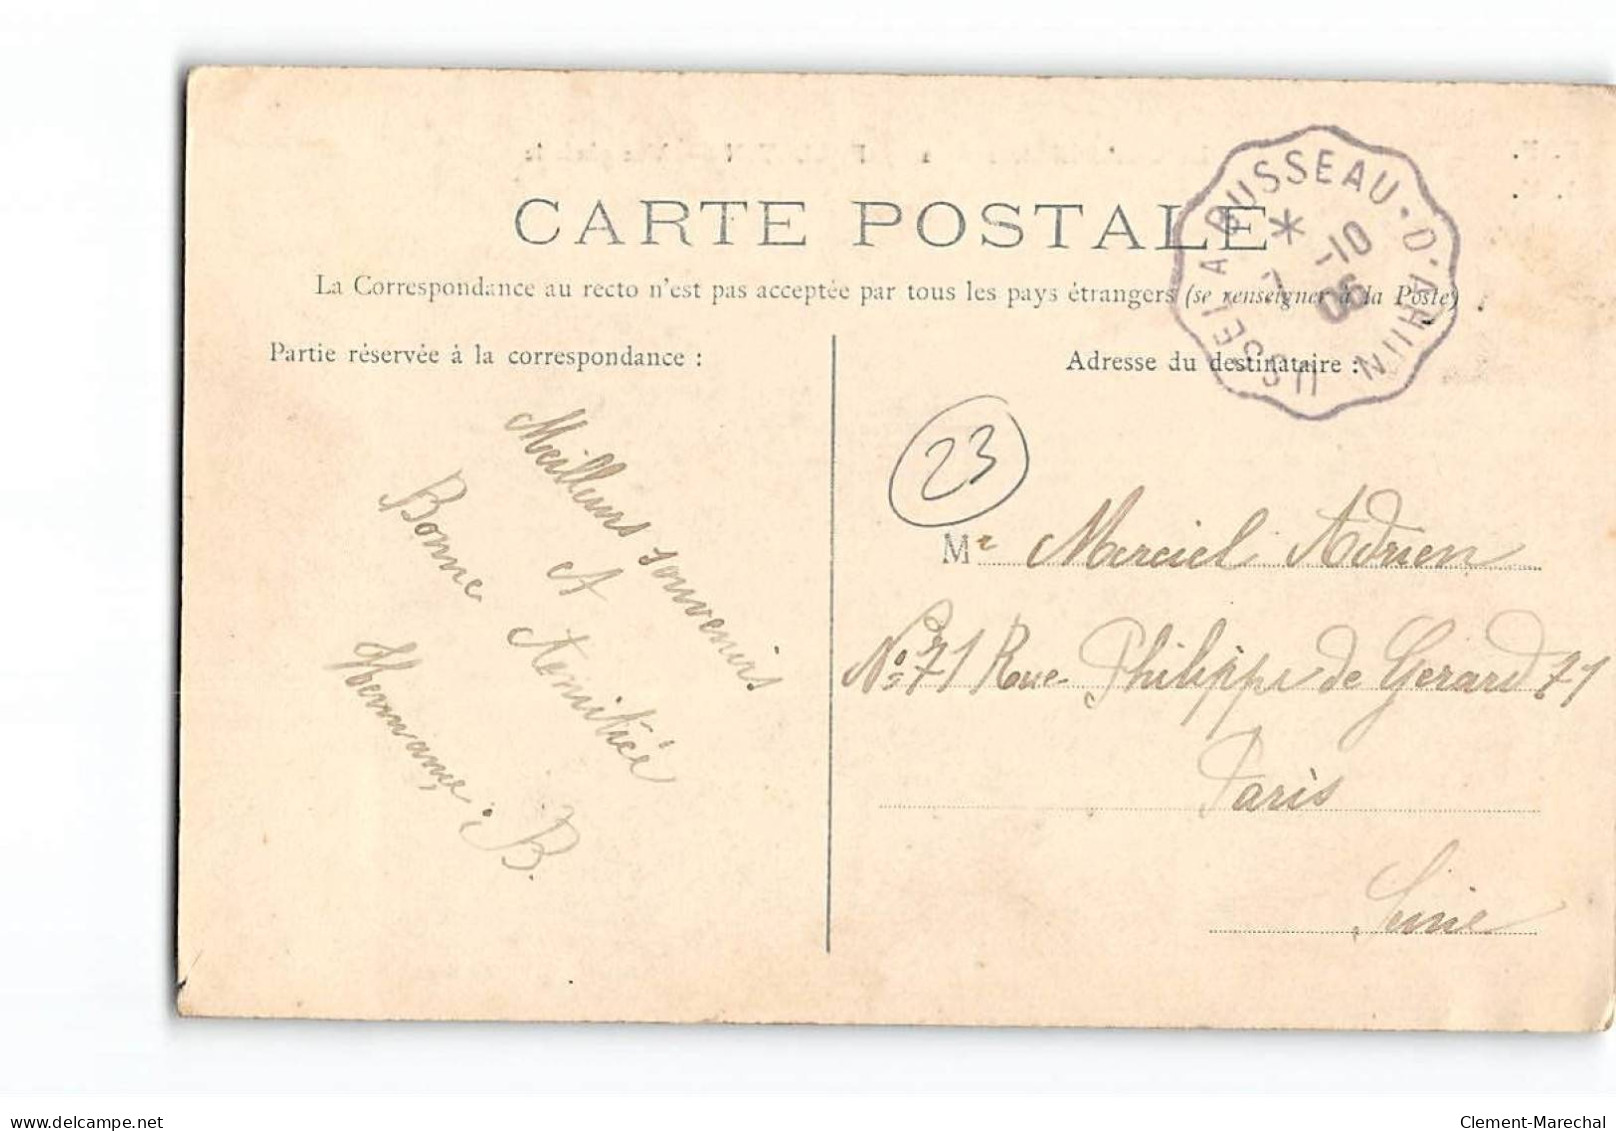 CARTE POSTALE
La Correspondance au recto n'est pas acceptée par tous les pays étrangers (se renseigner à la Poste)
USSEL A BUSSEAU-D'AHUN
-10
06
Partie réservée à la correspondance :
Meilleurs souvenirs
et
Bonne Amitiéé
Hermance. B.
Adresse du destinataire :
23
Mr Marciel Adrien
No 71 Rue Philippe de Gerard 71
Paris
Seine
www.delcampe.net
Clement-Marechal